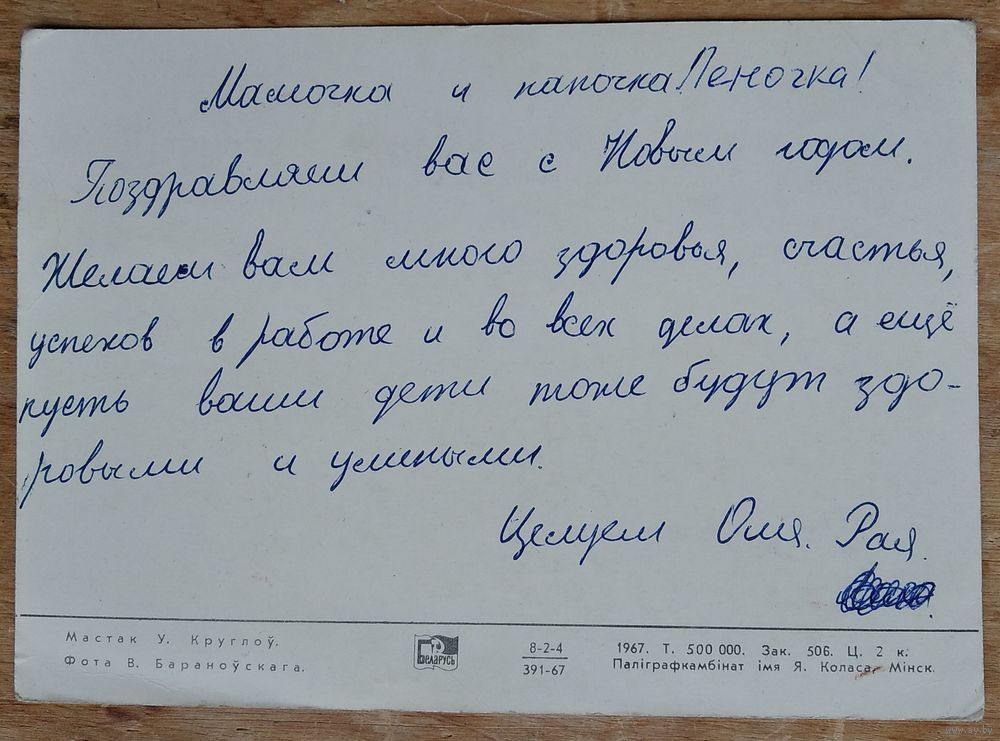 Мамочка и папочка! Леночка!
Поздравляем вас с Новым годом.
Желаем вам много здоровья, счастья,
успехов в работе и во всех делах, а ещё
пусть ваши дети тоже будут здо-
ровыми и умными.
Целуем Оля. Рая.
Мастак У. Круглоў.
Фота В. Бараноўскага.
Беларусь
8-2-4
391-67
1967. Т. 500 000. Зак. 506. Ц. 2 к.
Паліграфкамбінат імя Я. Коласа, Мінск.
www.ay.by